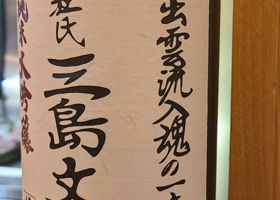 出雲流入魂の一
杜氏 三島文
純米大吟醸